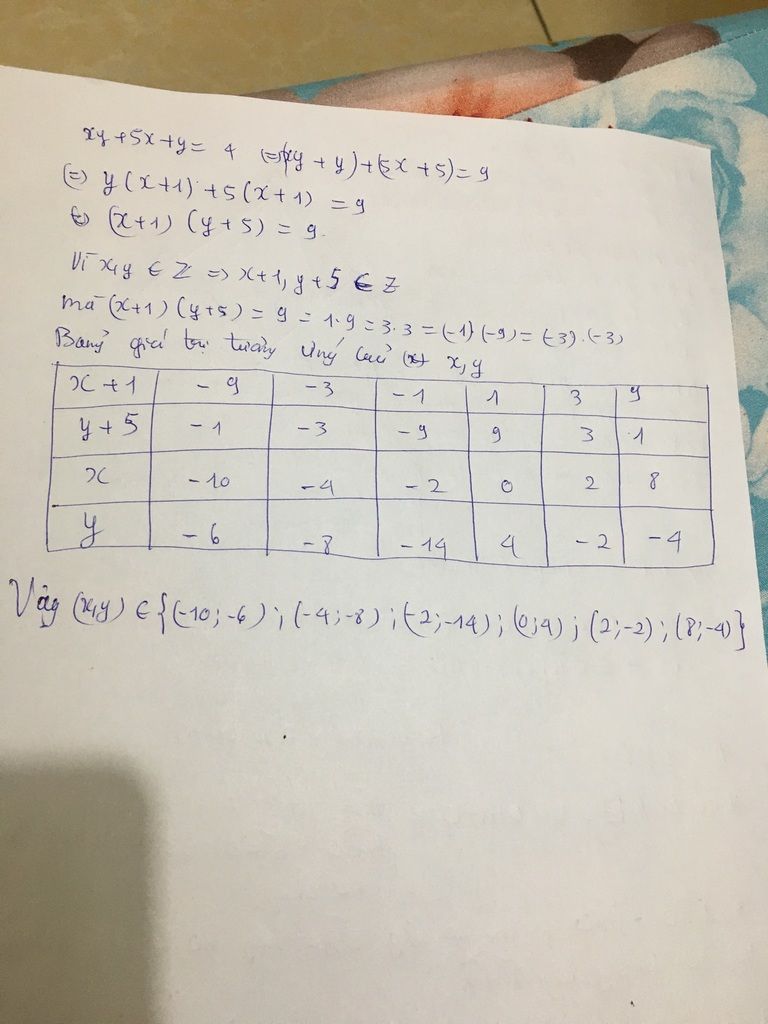 xy + 5x + y = 4 (=) (xy + y) + (5x + 5) = 9
(=) y (x+1) + 5 (x+1) = 9
(=) (x+1) (y+5) = 9.
Vì x,y ∈ Z => x+1, y+5 ∈ Z
mà (x+1) (y+5) = 9 = 1.9 = 3.3 = (-1)(-9) = (-3).(-3)
Bảng giá trị tương ứng của x, y
x + 1 -9 -3 -1 1 3 9
y + 5 -1 -3 -9 9 3 1
x -10 -4 -2 0 2 8
y -6 -8 -14 4 -2 -4
Vậy (x,y) ∈ {(-10;-6) ; (-4;-8) ; (-2;-14) ; (0;4) ; (2;-2) ; (8;-4)}